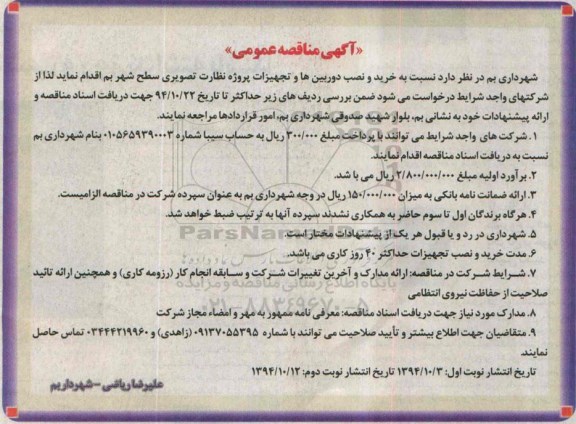 «آگهی مناقصه عمومی»
شهرداری بم در نظر دارد نسبت به خرید و نصب دوربین ها و تجهیزات پروژه نظارت تصویری سطح شهر بم اقدام نماید لذا از
شرکتهای واجد شرایط درخواست می شود ضمن بررسی ردیف های زیر حداکثر تا تاریخ ۹۴/۱۰/۲۲ جهت دریافت اسناد مناقصه و
ارائه پیشنهادات خود به نشانی بم، بلوار شهید صدوقی شهرداری بم، امور قراردادها مراجعه نمایند.
۱. شرکت های واجد شرایط می توانند با پرداخت مبلغ ۳۰۰/۰۰۰ ریال به حساب سیبا شماره ۰۱۰۵۶۵۹۳۹۰۰۰۳ بنام شهرداری بم
نسبت به دریافت اسناد مناقصه اقدام نمایند.
۲. برآورد اولیه مبلغ ۲/۸۰۰/۰۰۰/۰۰۰ ریال می با شد.
۳. ارائه ضمانت نامه بانکی به میزان ۱۵۰/۰۰۰/۰۰۰ ریال در وجه شهرداری بم به عنوان سپرده شرکت در مناقصه الزامیست.
۴. هرگاه برندگان اول تا سوم حاضر به همکاری نشدند سپرده آنها به ترتیب ضبط خواهد شد.
۵. شهرداری در رد و یا قبول هر یک از پیشنهادات مختار است.
ParsNam
۶. مدت خرید و نصب تجهیزات حداکثر ۴۰ روز کاری می باشد.
۷. شرایط شرکت در مناقصه: ارائه مدارک و آخرین تغییرات شرکت و سابقه انجام کار (رزومه کاری) و همچنین ارائه تائید
پایگاه اطلاع رسانی مناقصه و مزایده
صلاحیت از حفاظت نیروی انتظامی
۰۲۱-۸۸۳۴۹۶۷۰-۵
۸. مدارک مورد نیاز جهت دریافت اسناد مناقصه: معرفی نامه ممهور به مهر و امضاء مجاز شرکت
۹. متقاضیان جهت اطلاع بیشتر و تأیید صلاحیت می توانند با شماره ۰۹۱۳۷۰۵۵۳۹۵ (زاهدی) و ۰۳۴۴۴۲۱۹۹۶۰ تماس حاصل
نمایند.
تاریخ انتشار نوبت اول: ۱۳۹۴/۱۰/۳ تاریخ انتشار نوبت دوم: ۱۳۹۴/۱۰/۱۲
علیرضا ریاضی - شهردار بم